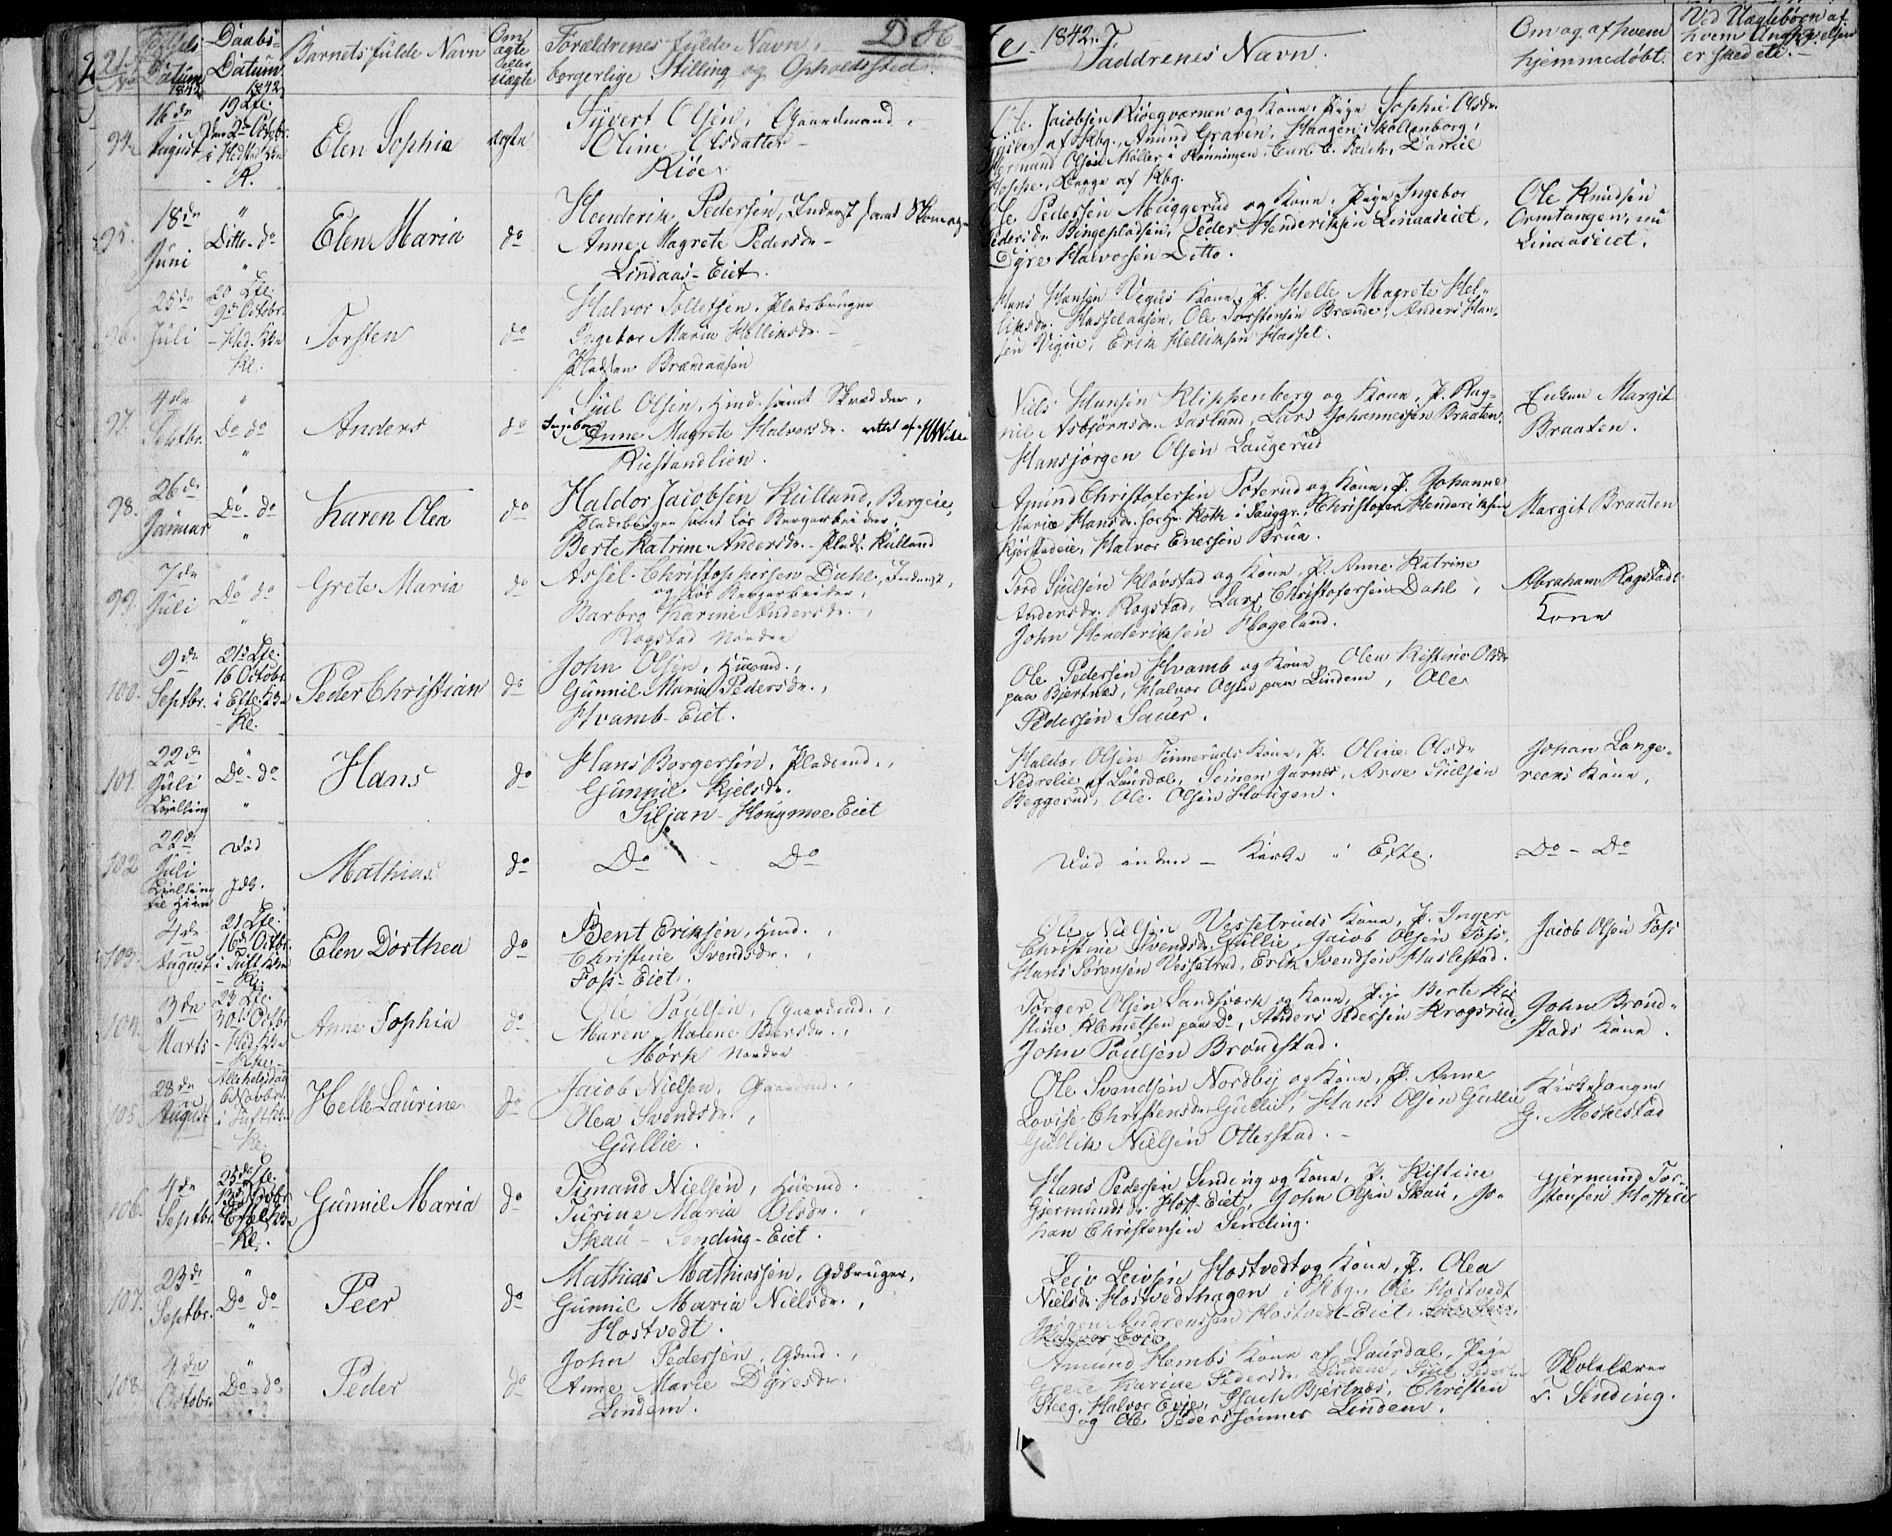 21.
Fødsels Datum 1842
Daabs-Datum 1842
Barnets fulde Navn
Om ægte eller uægte
Forældrenes fulde Navn,
borgerlige Stilling og Opholdssted.
Døb-
te 1842.
Faddrenes Navn.
Om og af hvem
hjemmedøbt.
Ved Uægtebørn af
hvem Angivelsen
er skeed etc.
94.
16de
August
19 Ste.
den 2de Octobr.
i Hedstad Kbn
K.
Elen Sophia
ægte
Syvert Olsen, Gaardmand,
Oline Olsdatter
Kiøe
Ole Jacobsen Kiøeqværnen og Kone, Pige Sophie Olsdr.
af Kbg. Amund Graven, Haagen Skollenborg,
Hermand Olsen Møller i Rønningen, Carl C. Koch, Daniel
Hoppe, Begge af Kbg.
95.
18de
Juni
"
Ditto do
"
Elen Maria
do
Henderik Pedersen, Inderst samt Skomag.
Anne Magrete Pedersdr
Lindaas-Eiet.
Ole Pedersen Muggerud og Kone, Pige Ingebor
Pedersdr. Bingepladsen, Peder Henderiksen Linaaseiet,
Dyre Halvorsen Ditto.
Ole Knudsen
Ormtangen, nu
Linaaseiet.
96.
25de
Juli
20 Ste.
9de Octobr.
- Hed. Kbn
Kl.
Torsten
do
Halvor Tollefsen, Pladsbruger
Ingebor Maria Helliksdr.
Pladsen Brændaasen
Hans Hansen Vigus Kone, P. Helle Magrete Hel-
liksdr. Hasselaasen, Ole Torstensen Brænde, Anders Han-
sen Vigu, Erik Helliksen Hassel.
97.
4de
Septbr.
"
Do do
"
Anders
do
Sjul Olsen, Hmd. samt Skrædder,
Ingebor
Anne Magrete Halvorsdr. rettet af
Riustandlien.
Niels Hansen Klippenberg og Kone, P. Rag-
nil Asbjørnsdr. Aaslund, Lars Johannessen Braaten,
Hansjørgen Olsen Laugerud
Enken Margit
Braaten.
98.
26de
Januar
"
Do do
"
Karen Olea
do
Haldor Jacobsen Kulland, Bergeie,
Pladsbruger samt løs Bergarbeider,
Berte Katrine Andersdr. Plads. Kulland
Amund Christofersen Foterud og Kone, P. Johanne
Marie Hansdr. hos Hr. Roth i Sauggr., Christofer Henderiksen
Kjørstadeie, Halvor Enersen Brua.
Margit Braaten
99.
7de
Juli
"
Do do
"
Grete Maria
do
Assel Christophersen Dahl, Inderst,
og løs Bergarbeider,
Barbro Karine Andersdr.,
Rogstad Nordre
Tord Sjulsen Kløvstad og Kone, P. Anne Katrine
Andersdr. Rogstad, Lars Christofersen Dahl,
John Henderiksen Hageland.
Abraham Rogstads
Kone
100.
9de
Septbr.
21de Ste.
16 Octobr.
i Efte. Kbn
Kl.
Peder Christian
do
John Olsen, Huusmd.,
Gunnil Maria Pedersdr.,
Hvamb-Eiet.
Ole Pedersen Hvamb og Kone, Olea Kistine Olsdr
paa Bjertnæs, Halvor Olsen paa Lindem, Ole
Pedersen Sauer.
101.
22de
Juli
Tvilling
"
Do do
"
Hans
do
Hans Borgersen, Pladsmd.,
Gunnil Kjelsdr.
Siljan-Hougmoe Eiet
Haldor Olsen Finneruds Kone, P. Oline Olsdr
Nedrelie af Laurdal, Simen Jarnes, Arve Sjulsen
Beggerud, Ole Olsen Haugen.
Johan Lange-
reens Kone,
102
22de
Juli
Tvilling
til Hans
Død
Jdb.
Mathias
do
Do - Do
Død inden - Kirke i Efte.
Do - Do
103.
4de
August
21 Ste.
16de Octbr.
i Tuft Kbn
Kl.
Elen Dorthea
do
Bent Eriksen, Hmd.,
Christine Svendsdr.,
Foss-Eiet.
Ole Nielsen Vessetruds Kone, P. Inger
Christine Svendsdr. Gullie, Jacob Olsen Foss,
Hans Sørensen Vessetrud, Erik Svendsen Haslestad.
Jacob Olsen Foss
104.
3de
Marts
23 Ste.
30te Octbr
- Hed. Kbn
Kl.
Anne Sophia
do
Ole Poulsen, Gaardmd.,
Maren Malene Pedersdr.,
Mørk Nordre
Torger Olsen Sandsværk og Kone, Pige Berte Ki-
stine Klemetsen paa Do, Anders Pedersen Krogsrud,
John Poulsen Brøndstad.
John Brønd-
stads Kone.
105
28de
August
Allehelgesdag
6 Novbr.
i Tuft Kbn
Kl.
Helle Laurine
do
Jacob Nielsen, Gaardmd.,
Olea Svendsdr.,
Gullie.
Ole Svendsen Nordby og Kone, P. Anne
Lovise Christensdr. Gullie, Hans Olsen Gullie
Gullik Nielsen Otterstad.
Kirkesanger
G. Meskestad
106.
4de
Septbr.
25de Ste.
13de Novbr
i Efte. Kbn
Kl.
Gunnil Maria
do
Timand Nielsen, Huusmd.
Turine Maria Olsdr.,
Skau-Sending-Eiet.
Hans Pedersen Sending og Kone, P. Kistine
Gjermundsdr. Hoff-Eiet, John Olsen Skau, Jo-
han Christensen Sending.
Gjermund Tor-
stensen Hoffeie
107.
23de
Septbr.
"
Do do
"
Peer
do
Mathias Mathiassen, Gdbruger,
Gunnil Maria Nielsdr.,
Hostvedt.
Leiv Leivsen Hostvedt og Kone, P. Olea
Nielsdr. Hostvedthagen i Kbg., Ole Hostvedt
Jørgen Andreassen Hostvedt-Eiet,
Halvor Evje
108.
4de
Octobr.
"
Do do
"
Peder
do
John Pedersen, Gdmd.,
Anne Marie Dyresdr.
Lindem.
Amund Hembs Kone af Laurdal, Pige
Grete Karine Pedersdr. Lindem,
Steeg, Halvor Evje, Isach Bjertnæs, Christen
og Ole Pederssønner Lindem.
Skolelærer
S. Sending.